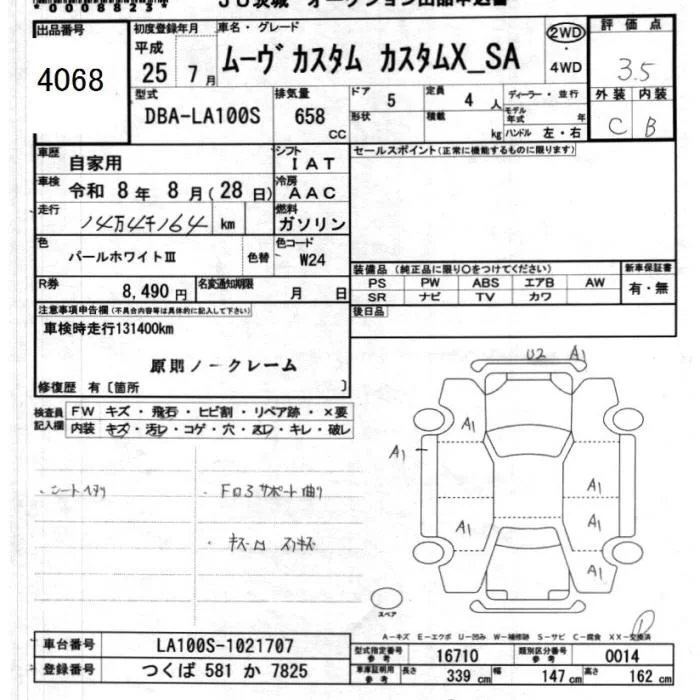 *0008823*
JU茨城 オークション出品申込書
出品番号
4068
初度登録年月
平成
25 年 7 月
車名・グレード
ムーヴ カスタム カスタムX_SA
2WD
・
4WD
評価点
3.5
外装 内装
C B
型式
DBA-LA100S
排気量
658
CC
ドア
5
定員
4 人
形状
積載
kg
ディーラー・並行
モデル年式 年
ハンドル 左・右
車歴
自家用
シフト
IAT
セールスポイント(正常に機能するものに限ります)
車検
令和 8 年 8 月 (28 日)
冷房
AAC
走行
14万4千164 km
燃料
ガソリン
色
パールホワイトⅢ
色替
色コード
W24
R券
8,490 円
名変通知期限
月 日
装備品 (純正品に限り〇をつけてください)
PS PW ABS エアB AW
SR ナビ TV カワ
新車保証書
有・無
後日品
注意事項申告欄(不具合内容等は具体的に記入して下さい)
車検時走行131400km
原則ノークレーム
修復歴 有〔箇所 〕
検査員
記入欄
FW キズ・飛石・ヒビ割・リペア跡・×要
内装 キズ・汚レ・コゲ・穴・スレ・キレ・破レ
・シートヘタリ
・Fロアサポート曲り
・キズ凹 スリキズ
U2 A1
A1
A1
A1
A1
A1
A1
スペア
A-キズ E-エクボ U-凹み W-補修跡 S-サビ C-腐食 XX-交換済
車台番号
LA100S-1021707
登録番号
つくば 581 か 7825
型式指定番号
参考
16710
類別区分番号
参考
0014
車庫証明用
参考
長さ
339 cm
幅
147 cm
高さ
162 cm